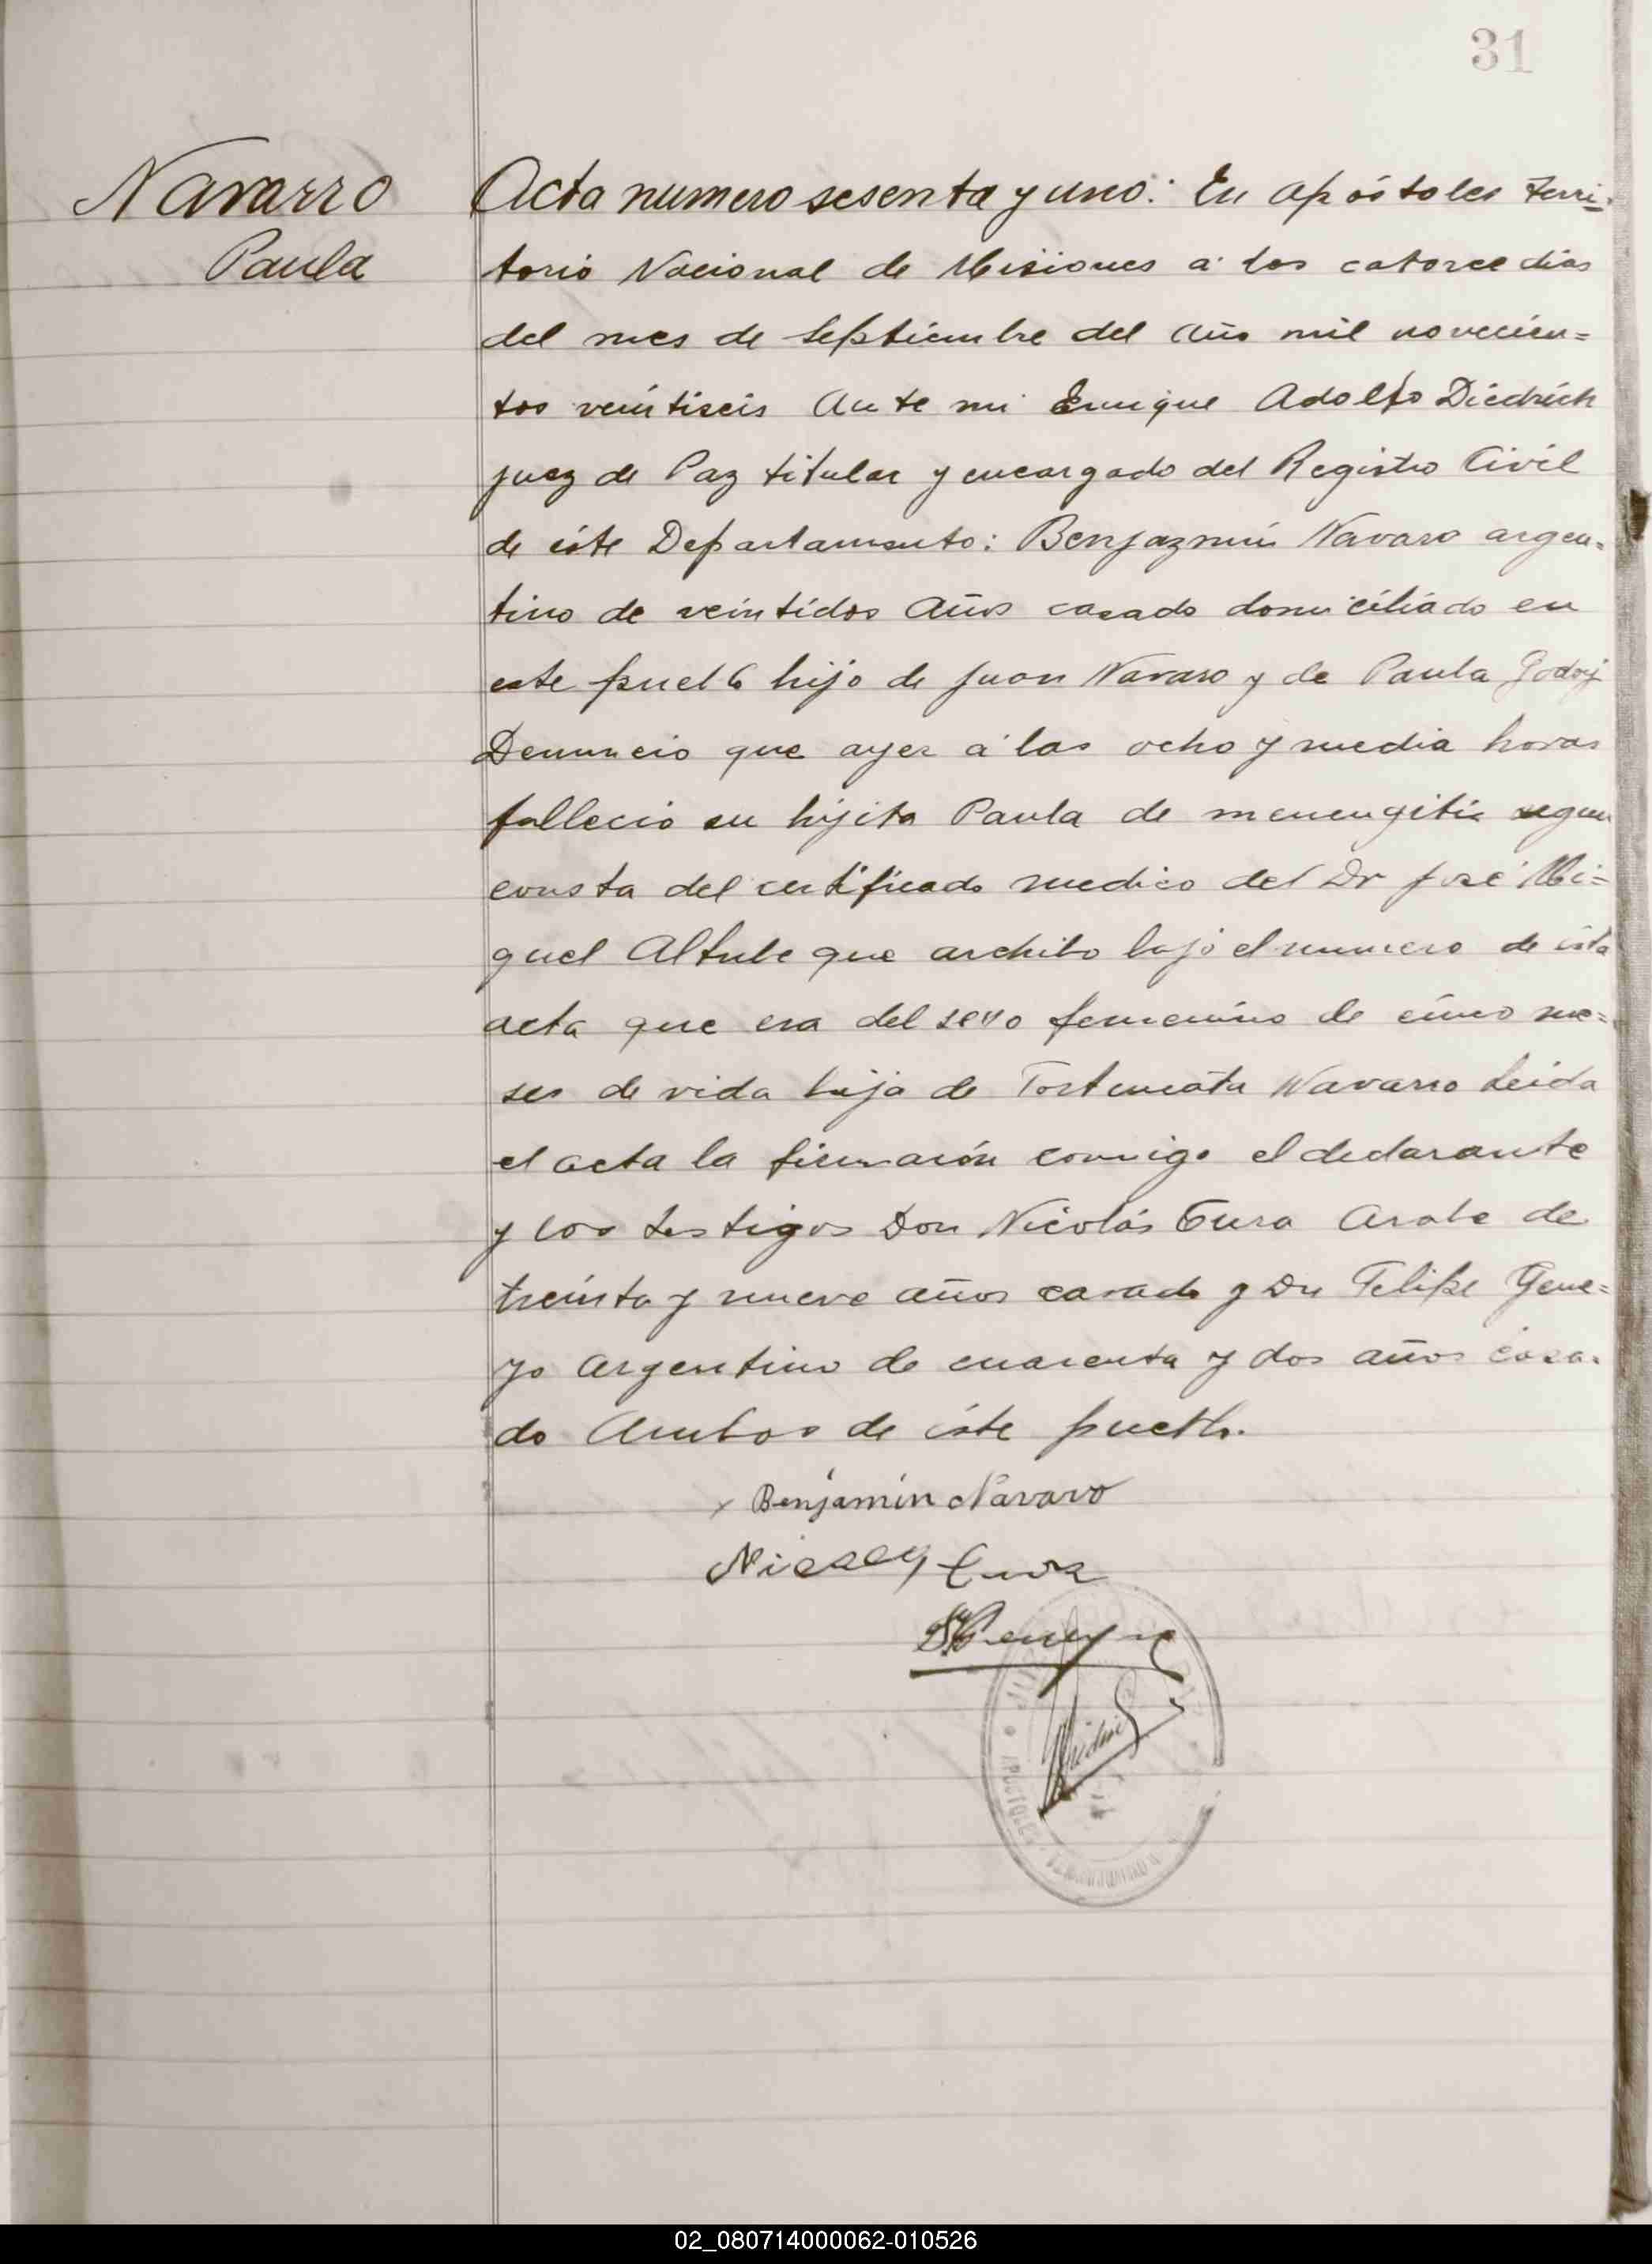 31
Navarro
Paula
Acta numero sesenta y uno: En Apóstoles Terri-
torio Nacional de Misiones a los catorce dias
del mes de Septiembre del año mil novecien=
tos veintiseis Ante mi Enrique Adolfo Diedrich
juez de Paz titular y encargado del Registro Civil
de éste Departamento: Benjazmin Navaro argen=
tino de veintidos años casado domiciliado en
este pueblo hijo de Juan Navaro y de Paula Godoy
Denuncio que ayer a las ocho y media horas
fallecio su hijita Paula de menengitis segun
consta del certificado medico del Dr José Mi=
guel Altube que archibo bajo el numero de ésta
acta que era del sexo femenino de cinco me=
ses de vida hija de Navarro Leida
el acta la firmarón conmigo el declarante
y los testigos Don Nicolás Eura Arabe de
treinta y nueve años casado y Dn Felipe Gene=
yo Argentino de cuarenta y dos años casa-
do Ambos de éste pueblo.
x Benjamín Navaro
02_080714000062-010526